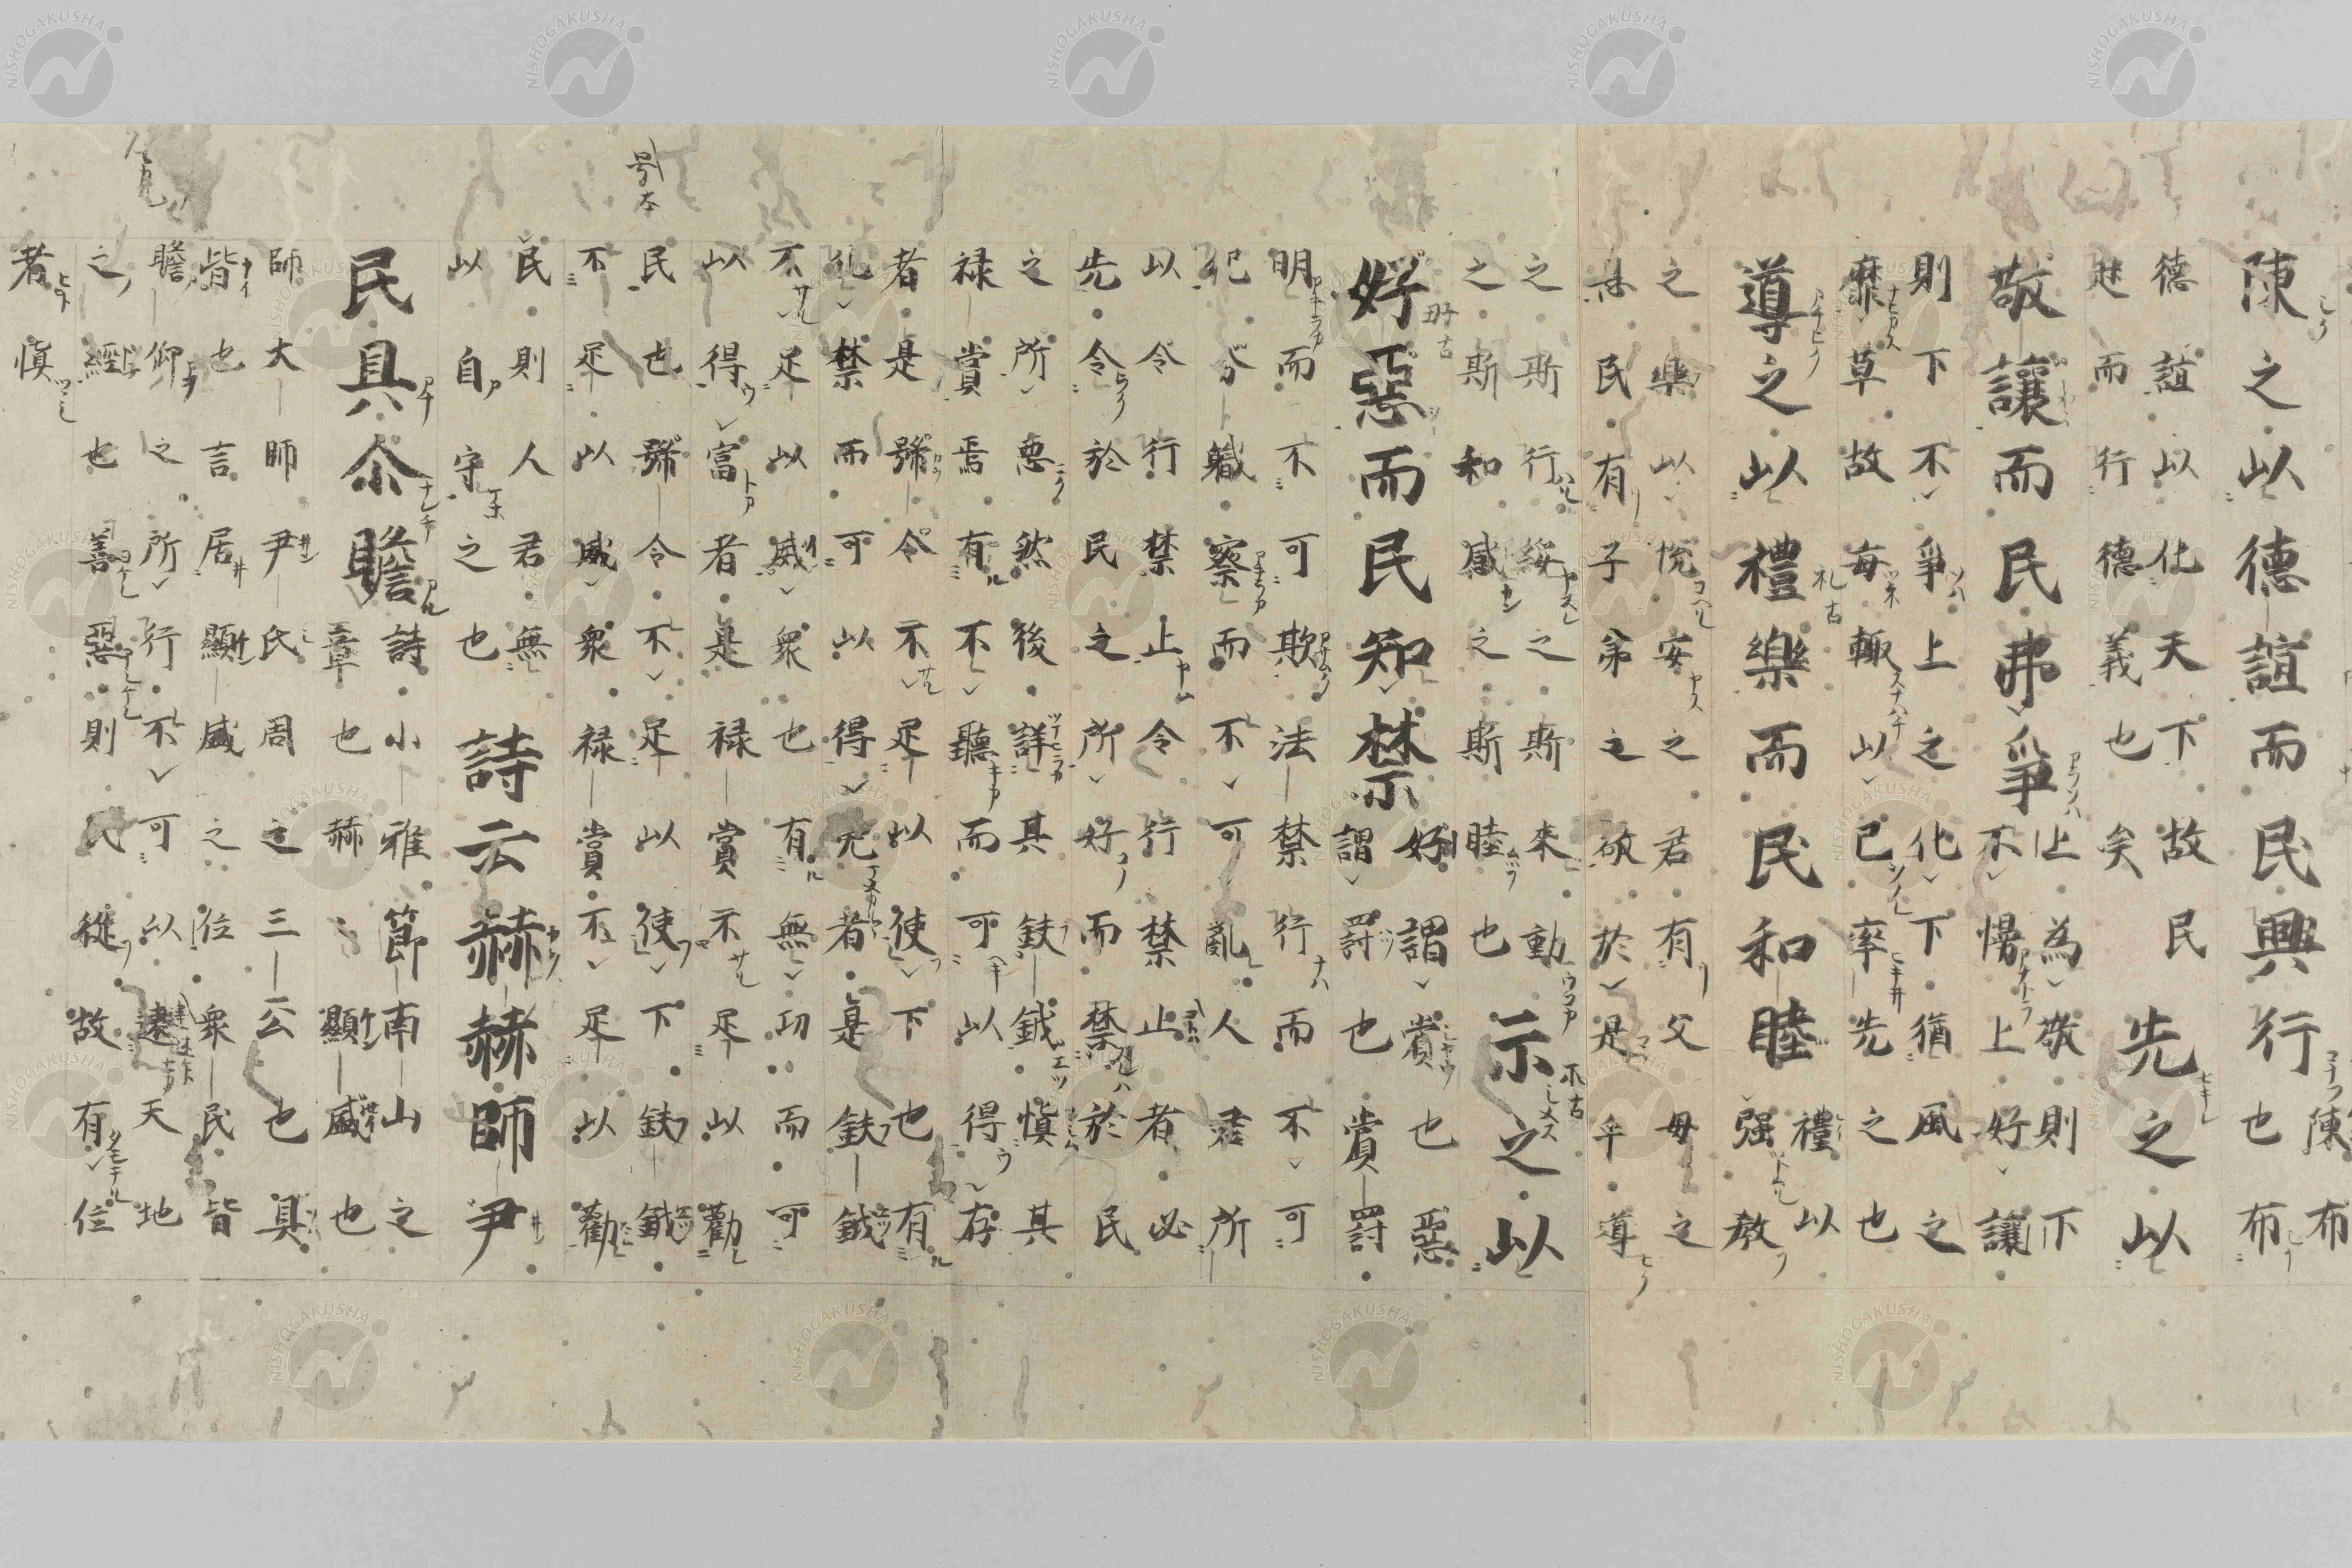 陳之以德誼而民興行 陳布
也布
德誼以化天下故民
起而行德義也矣 先之以
敬讓而民弗爭 上為敬則下
不慢上好讓
則下不爭上之化下猶風之
靡草故每輙以己率先之也
導之以禮樂而民和睦 禮以
强教
之樂以悅安之君有父母之
恩民有子弟之敬於是乎導
之斯行綏之斯來動
之斯和感之斯睦也 示之以
好惡而民知禁 好謂賞也惡
謂罰也賞罰
明而不可欺法禁行而不可
犯分職察而不可亂人君所
以令行禁止令行禁止者必
先令於民之所好而禁於民
之所惡然後詳其鈇鉞慎其
禄賞焉有不聽而可以得存
者是號令不足以使下也有
犯禁而可以得免者是鈇鉞
不足以威衆也有無功而可
以得富者是禄賞不足以勸
号本
民也號令不足以使下鈇鉞
不足以威衆禄賞不足以勸
民則人君無
以自守之也 詩云赫赫師尹
民具尒瞻 詩小雅節南山之
章也赫〻顯盛也
師大師尹氏周之三公也具
皆也言居顯盛之位衆民皆
瞻仰之所行不可以違天地
之經也善惡則民從故有位
者慎